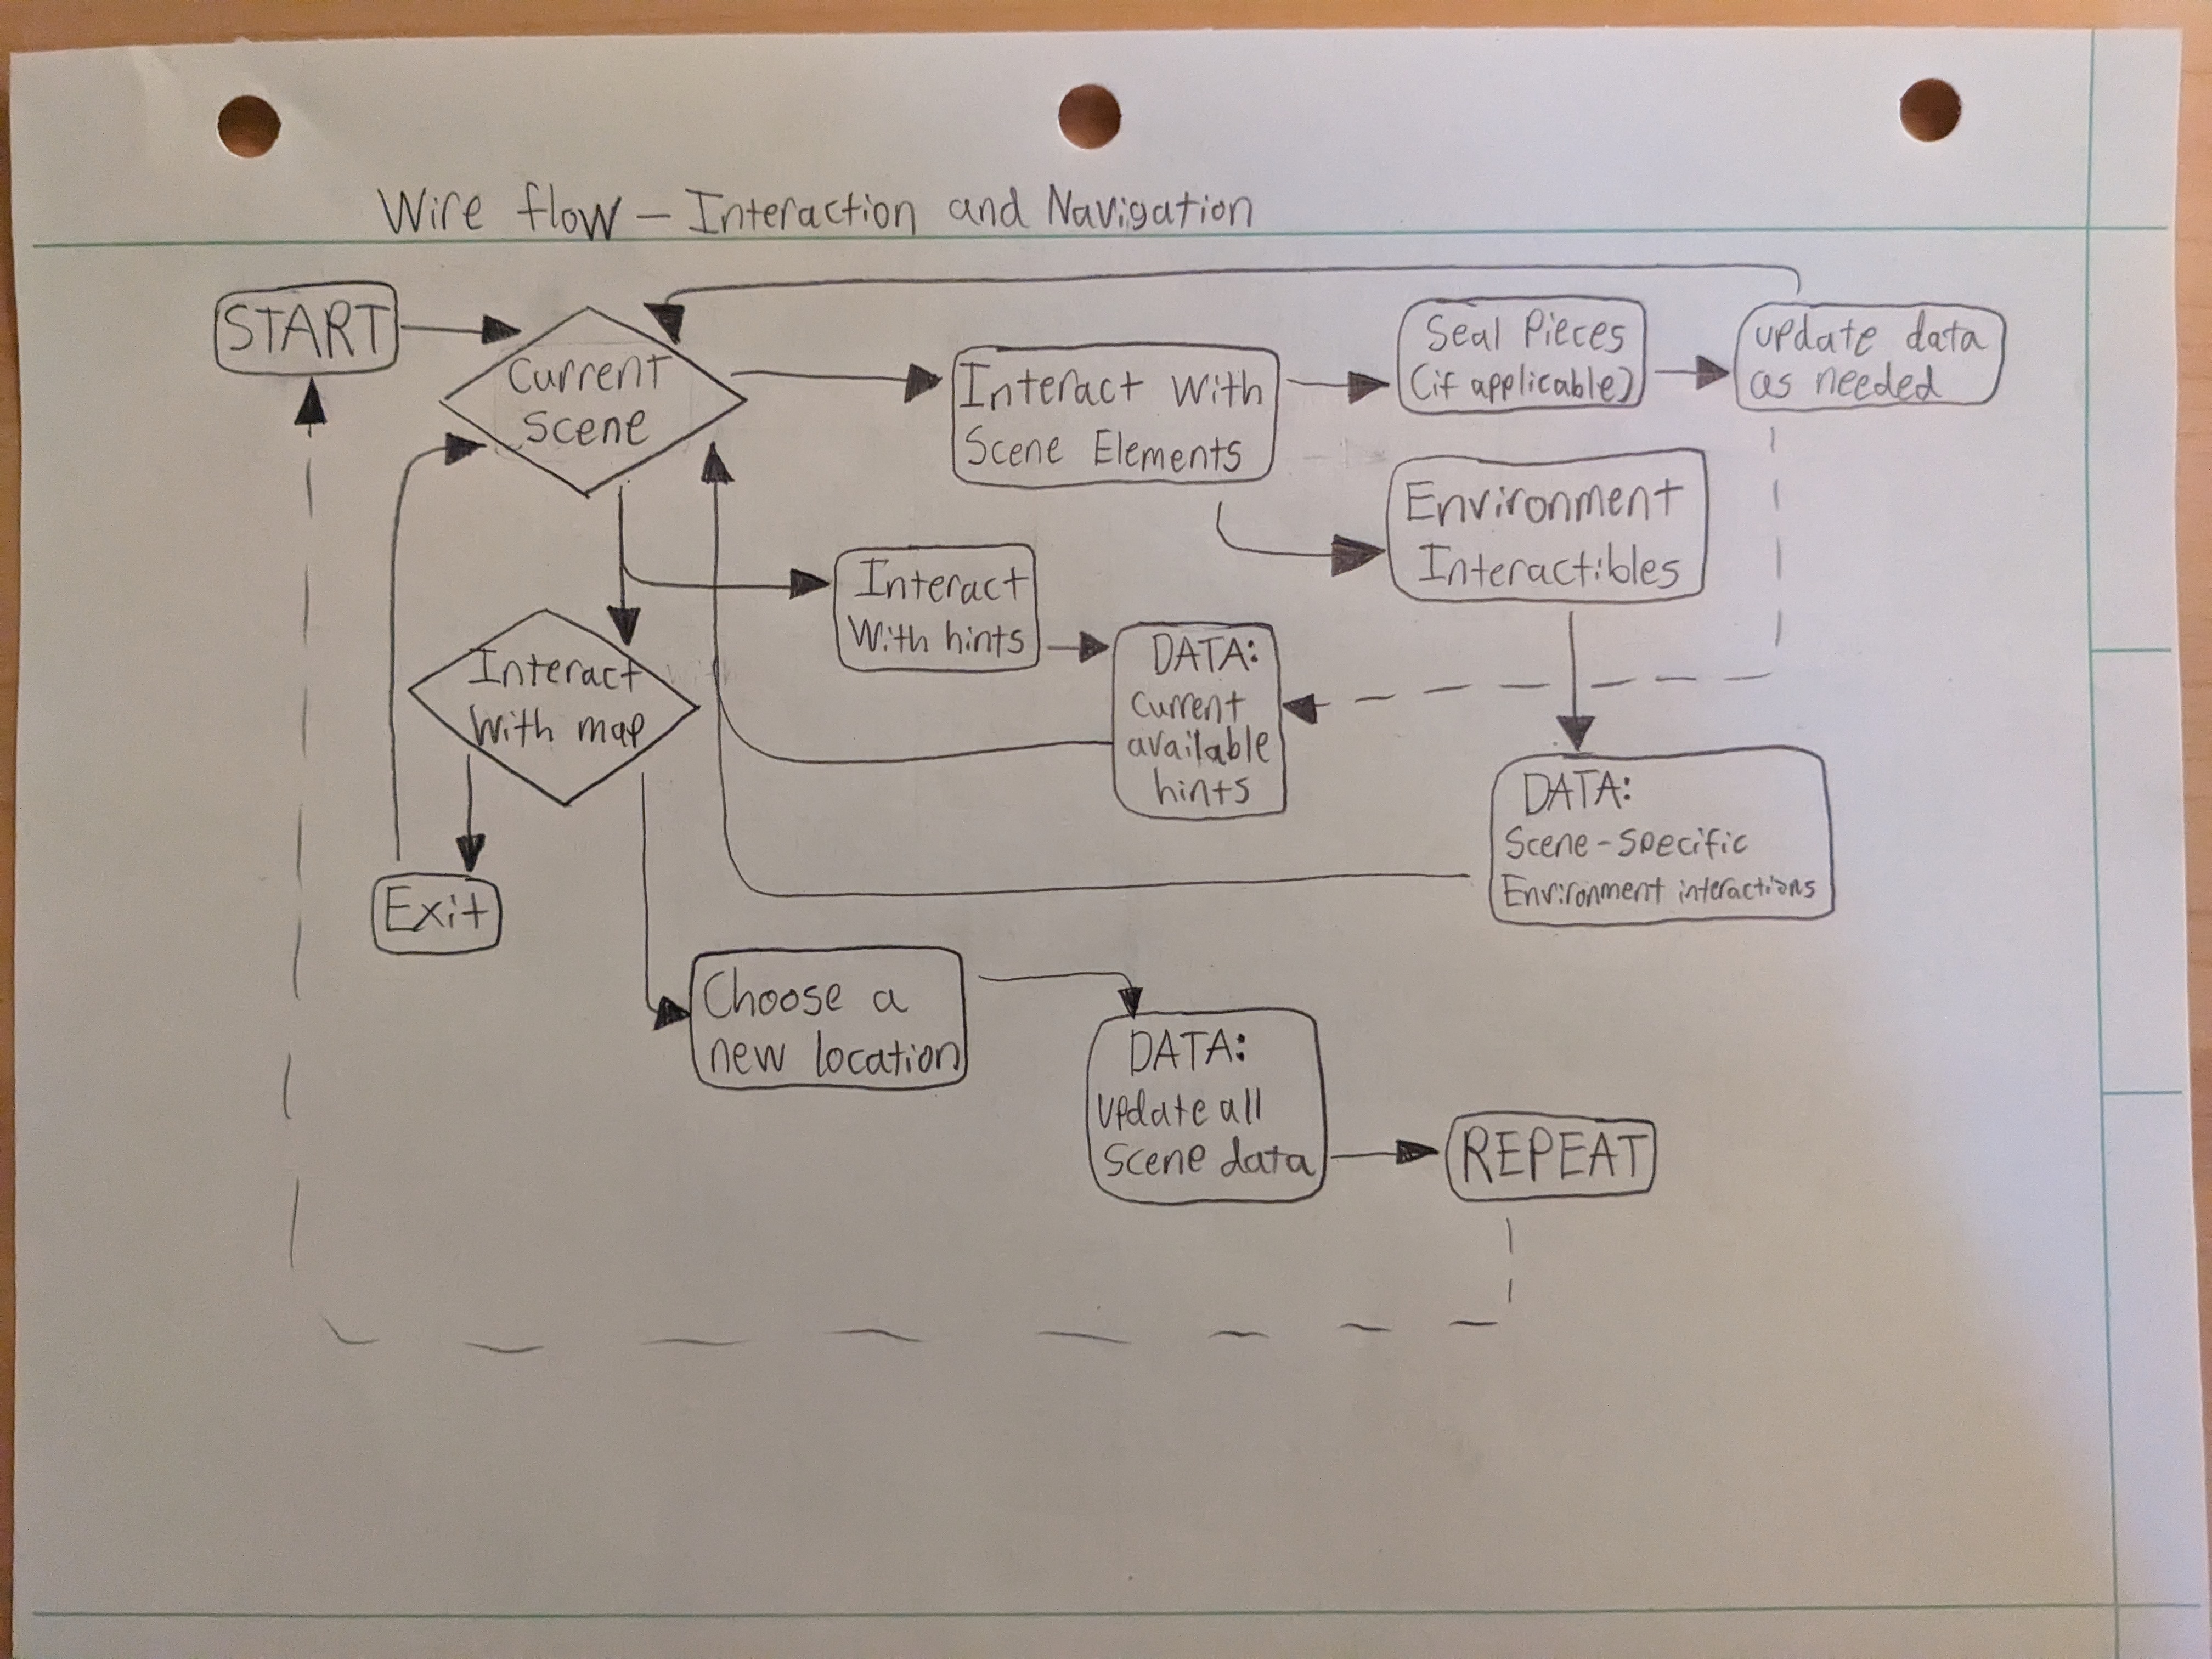 Wire flow - Interaction and Navigation
START
Current
Scene
Interact With
Scene Elements
Seal Pieces
(if applicable)
update data
as needed
Environment
Interactibles
Interact
With hints
DATA:
Current
available
hints
Interact
With map
DATA:
Scene-Specific
Environment interactions
Exit
Choose a
new location
DATA:
Update all
Scene data
REPEAT